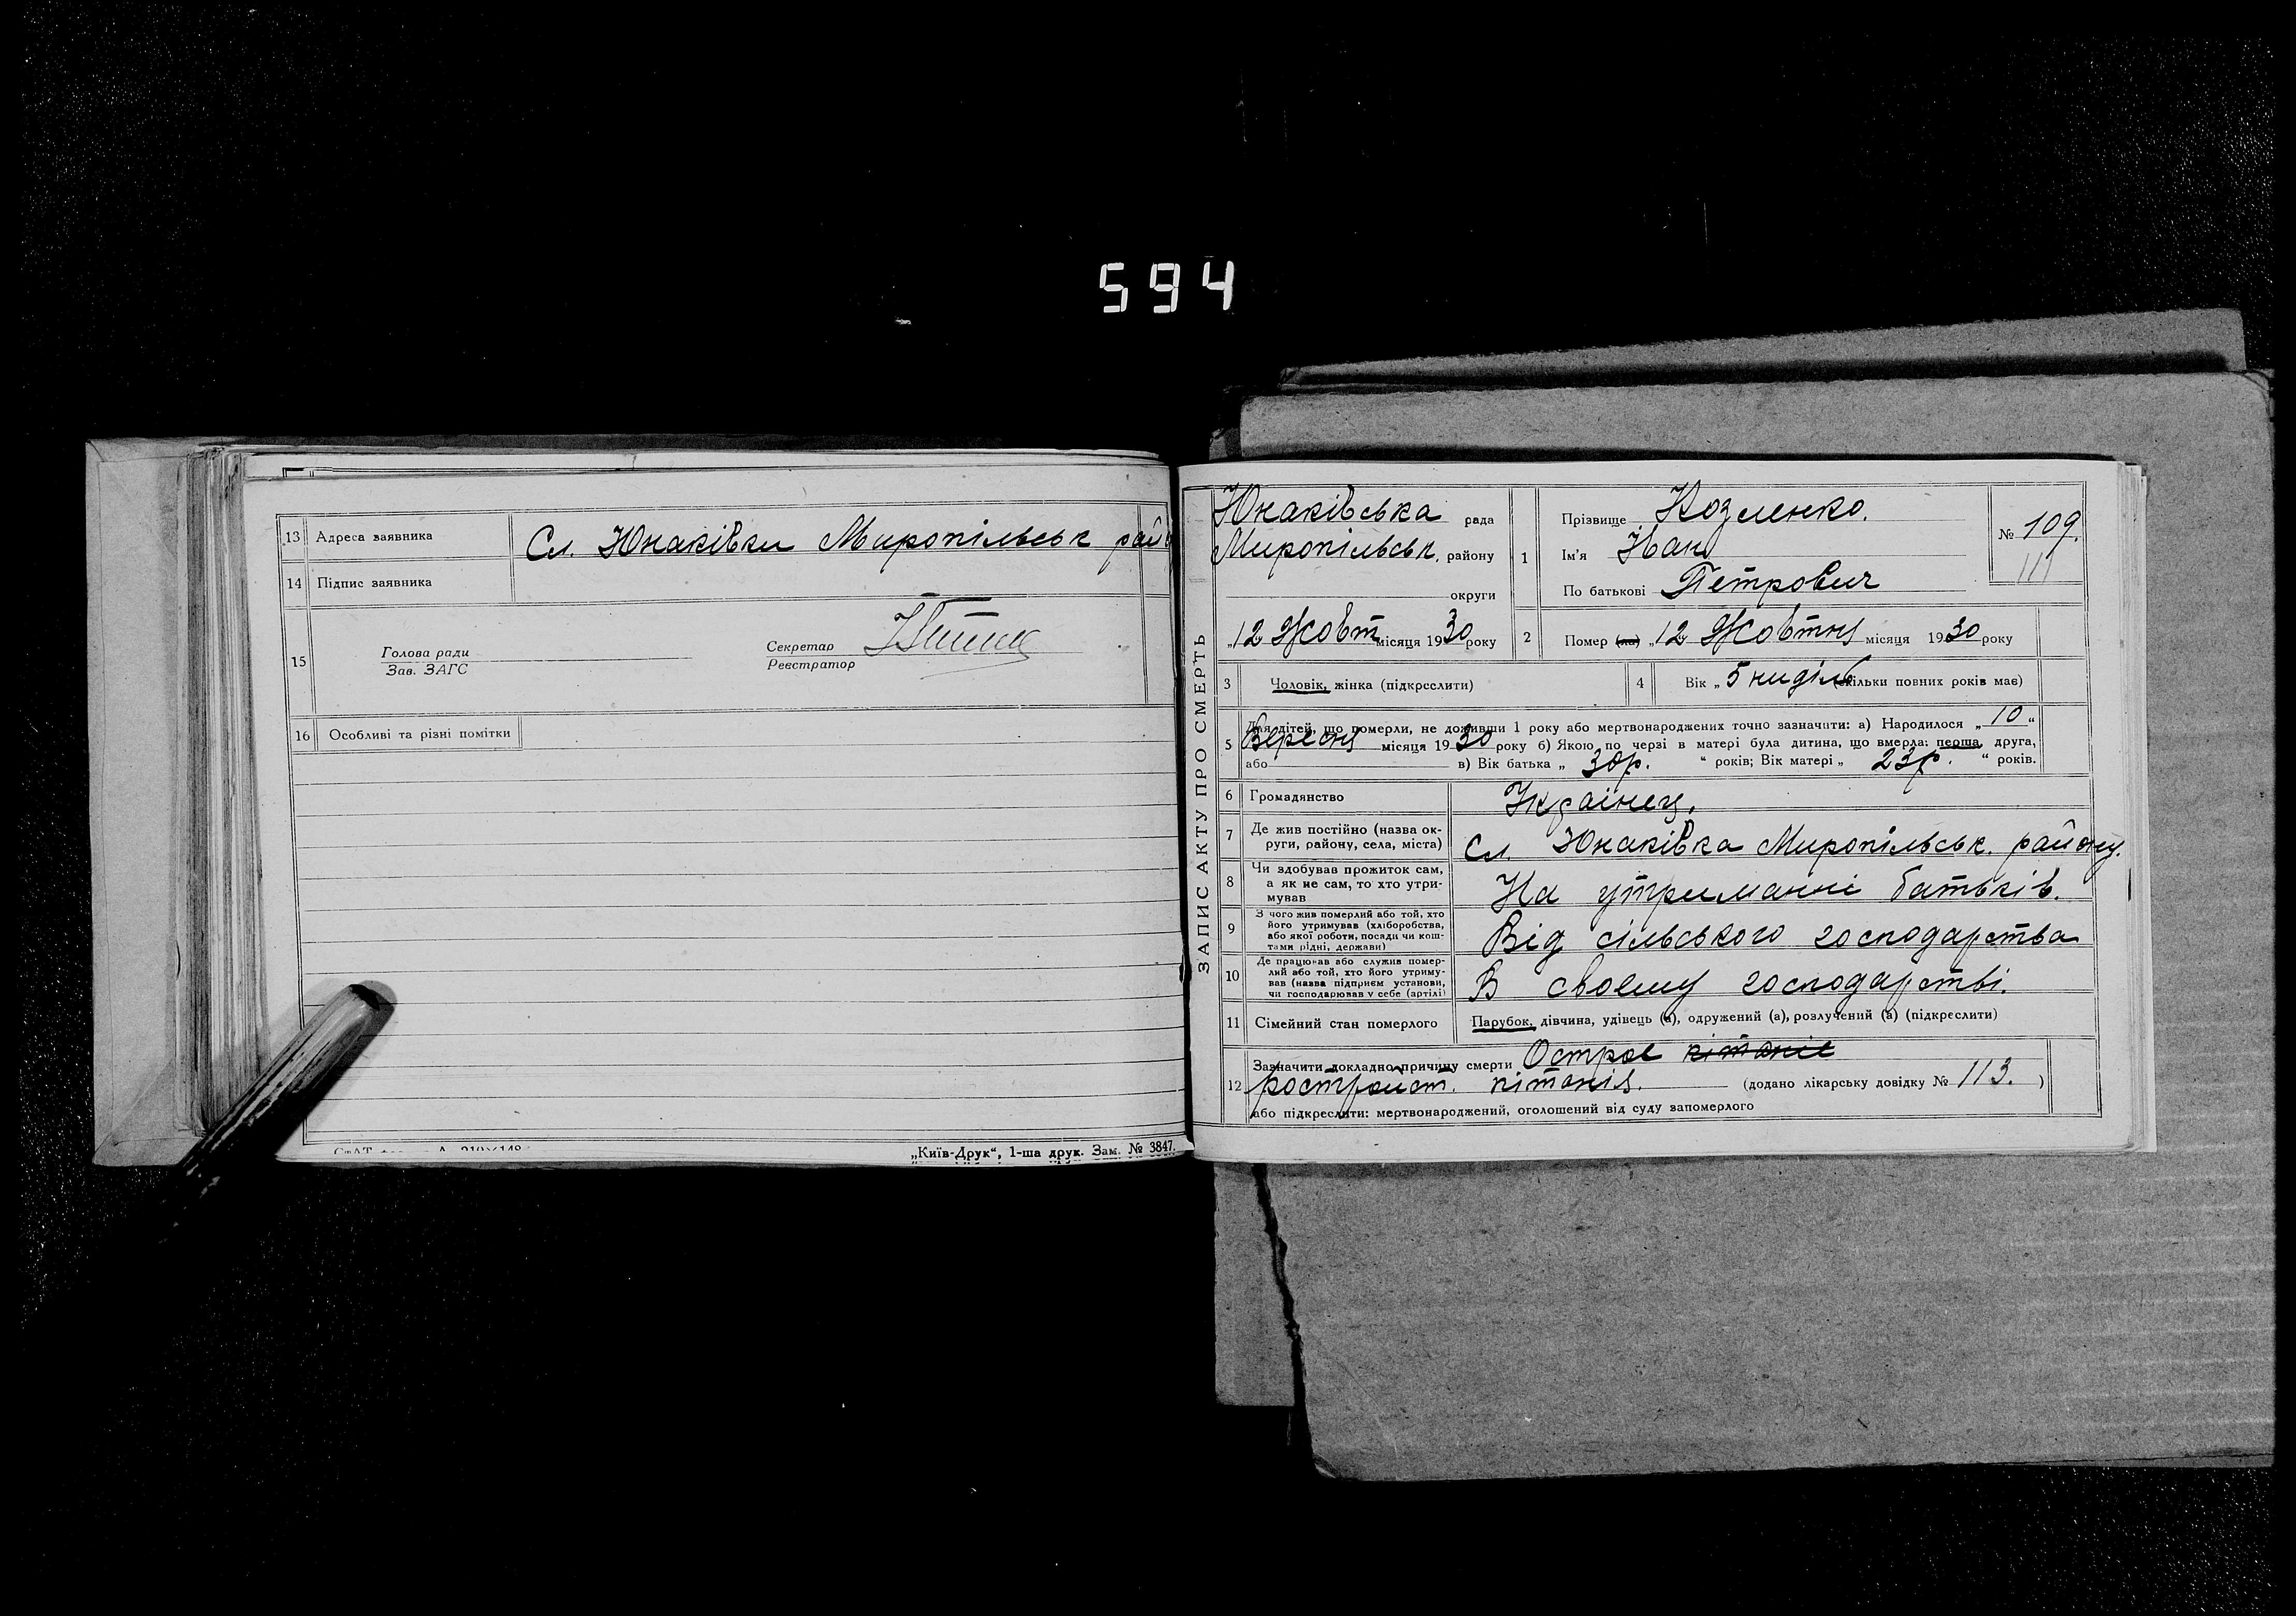 594
13 Адреса заявника Сл. Юнаківки Миропільськ рай
14 Підпис заявника
15 Голова ради
Зав. ЗАГС
Секретар
Реєстратор
16 Особливі та різні помітки
„Київ-Друк“, 1-ша друк. Зам. № 3847.
ЗАПИС АКТУ ПРО СМЕРТЬ
Юнаківська рада
Миропільськ. району
округи
„12 Жовт місяця 1930 року
1 Прізвище Козленко.
Ім'я Іван
По батькові Петрович
№ 109.
111
2 Помер (ла) „12 Жовтня місяця 1930 року
3 Чоловік, жінка (підкреслити)
4 Вік „ 5 ниділь (скільки повних років має)
5 Для дітей, що померли, не доживши 1 року або мертвонароджених точно зазначити: а) Народилося „ 10 “
Вересня місяця 1930 року б) Якою по черзі в матері була дитина, що вмерла: перша, друга,
або в) Вік батька „ 30р. “ років; Вік матері „ 23р. “ років.
6 Громадянство Українец.
7 Де жив постійно (назва ок-
руги, району, села, міста) Сл. Юнаківка Миропільськ. району.
8 Чи здобував прожиток сам,
а як не сам, то хто утри-
мував На утриманні батьків.
9 З чого жив померлий або той, хто
його утримував (хліборобства,
або якої роботи, посади чи кош-
тами рідні, держави) Від сільського господарства
10 Де працював або служив помер-
лий або той, хто його утриму-
вав (назва підприєм установи,
чи господарював у себе (артілі) В своему господарстві.
11 Сімейний стан померлого Парубок, дівчина, удівець (а), одружений (а), розлучений (а) (підкреслити)
12 Зазначити докладно причину смертиОстрое пітаніе
ростройст. пітанія. (додано лікарську довідку № 113. )
або підкреслити: мертвонароджений, оголошений від суду запомерлого